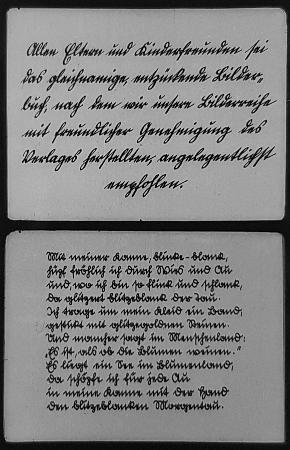 Allen Eltern und Kinderfreunden sei
das gleichnamige, entzückende Bilder-
buch, nach dem wir unsere Bilderreihe
mit freundlicher Genehmigung des
Verlages herstellten, angelegentlichst
empfohlen.
Mit meiner Kanne, blinke-blank,
hüpf fröhlich ich durch Wies und Au
und, wo ich bin so flink und schlank,
da glitzert blitzeblank der Tau.
Ich trage um mein Kleid ein Band,
gestickt mit glitzegoldnen Steinen.
Und mancher sagt im Menschenland:
"Es ist, als ob die Blumen weinen."
Es liegt ein See im Blumenland,
da schöpfe ich für jede Au
in meine Kanne mit der Hand
den blitzeblanken Morgentau.